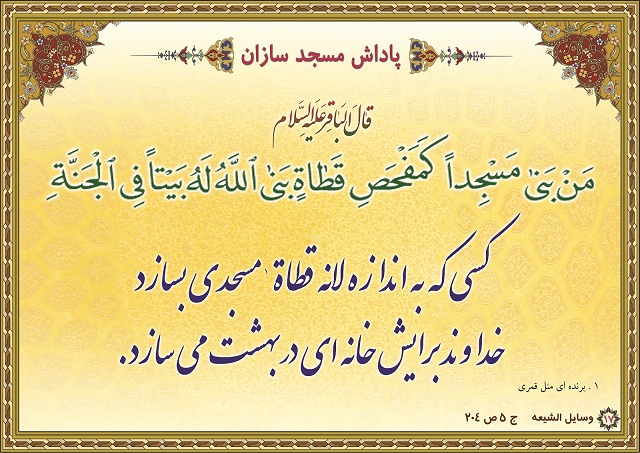 پاداش مسجد سازان
قالَ الباقِرُ عَلَیهِ السَّلام
مَنْ بَنیٰ مَسْجِداً كَمَفْحَصِ قَطٰاةٍ بَنیَ اللَّهُ لَهُ بَيْتاً فِی الْجَنَّةِ
کسی که به اندازه لانه قطاة۱ مسجدی بسازد
خداوند برایش خانه ای در بهشت می سازد.
۱ . پرنده ای مثل قمری
۱۷ وسایل الشیعه ج ۵ ص ۲۰۴